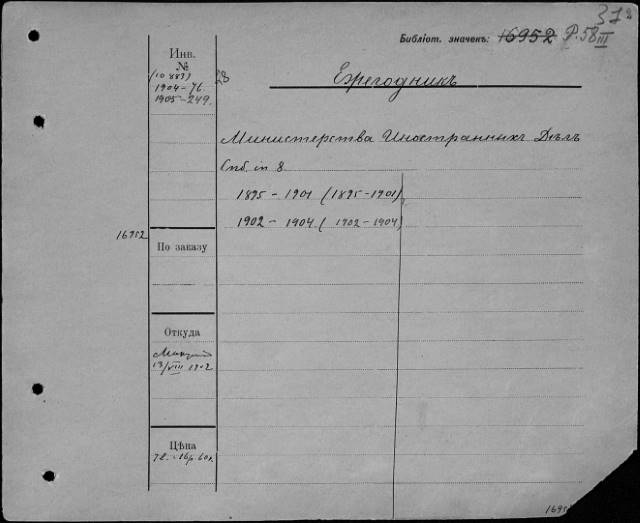 37²
Библіот. значекъ: 16952 P.58 III
Инв.
№
(10883)
1904-76.
1905-249.
28
Ежегодникъ
Министерства Иностранныхъ Дѣлъ
Спб. in 8.
1895 - 1901 (1895-1901)
1902 - 1904 (1902-1904)
16952
По заказу
Откуда
13/VIII 1902
Цѣна
16р. 60к.
1695